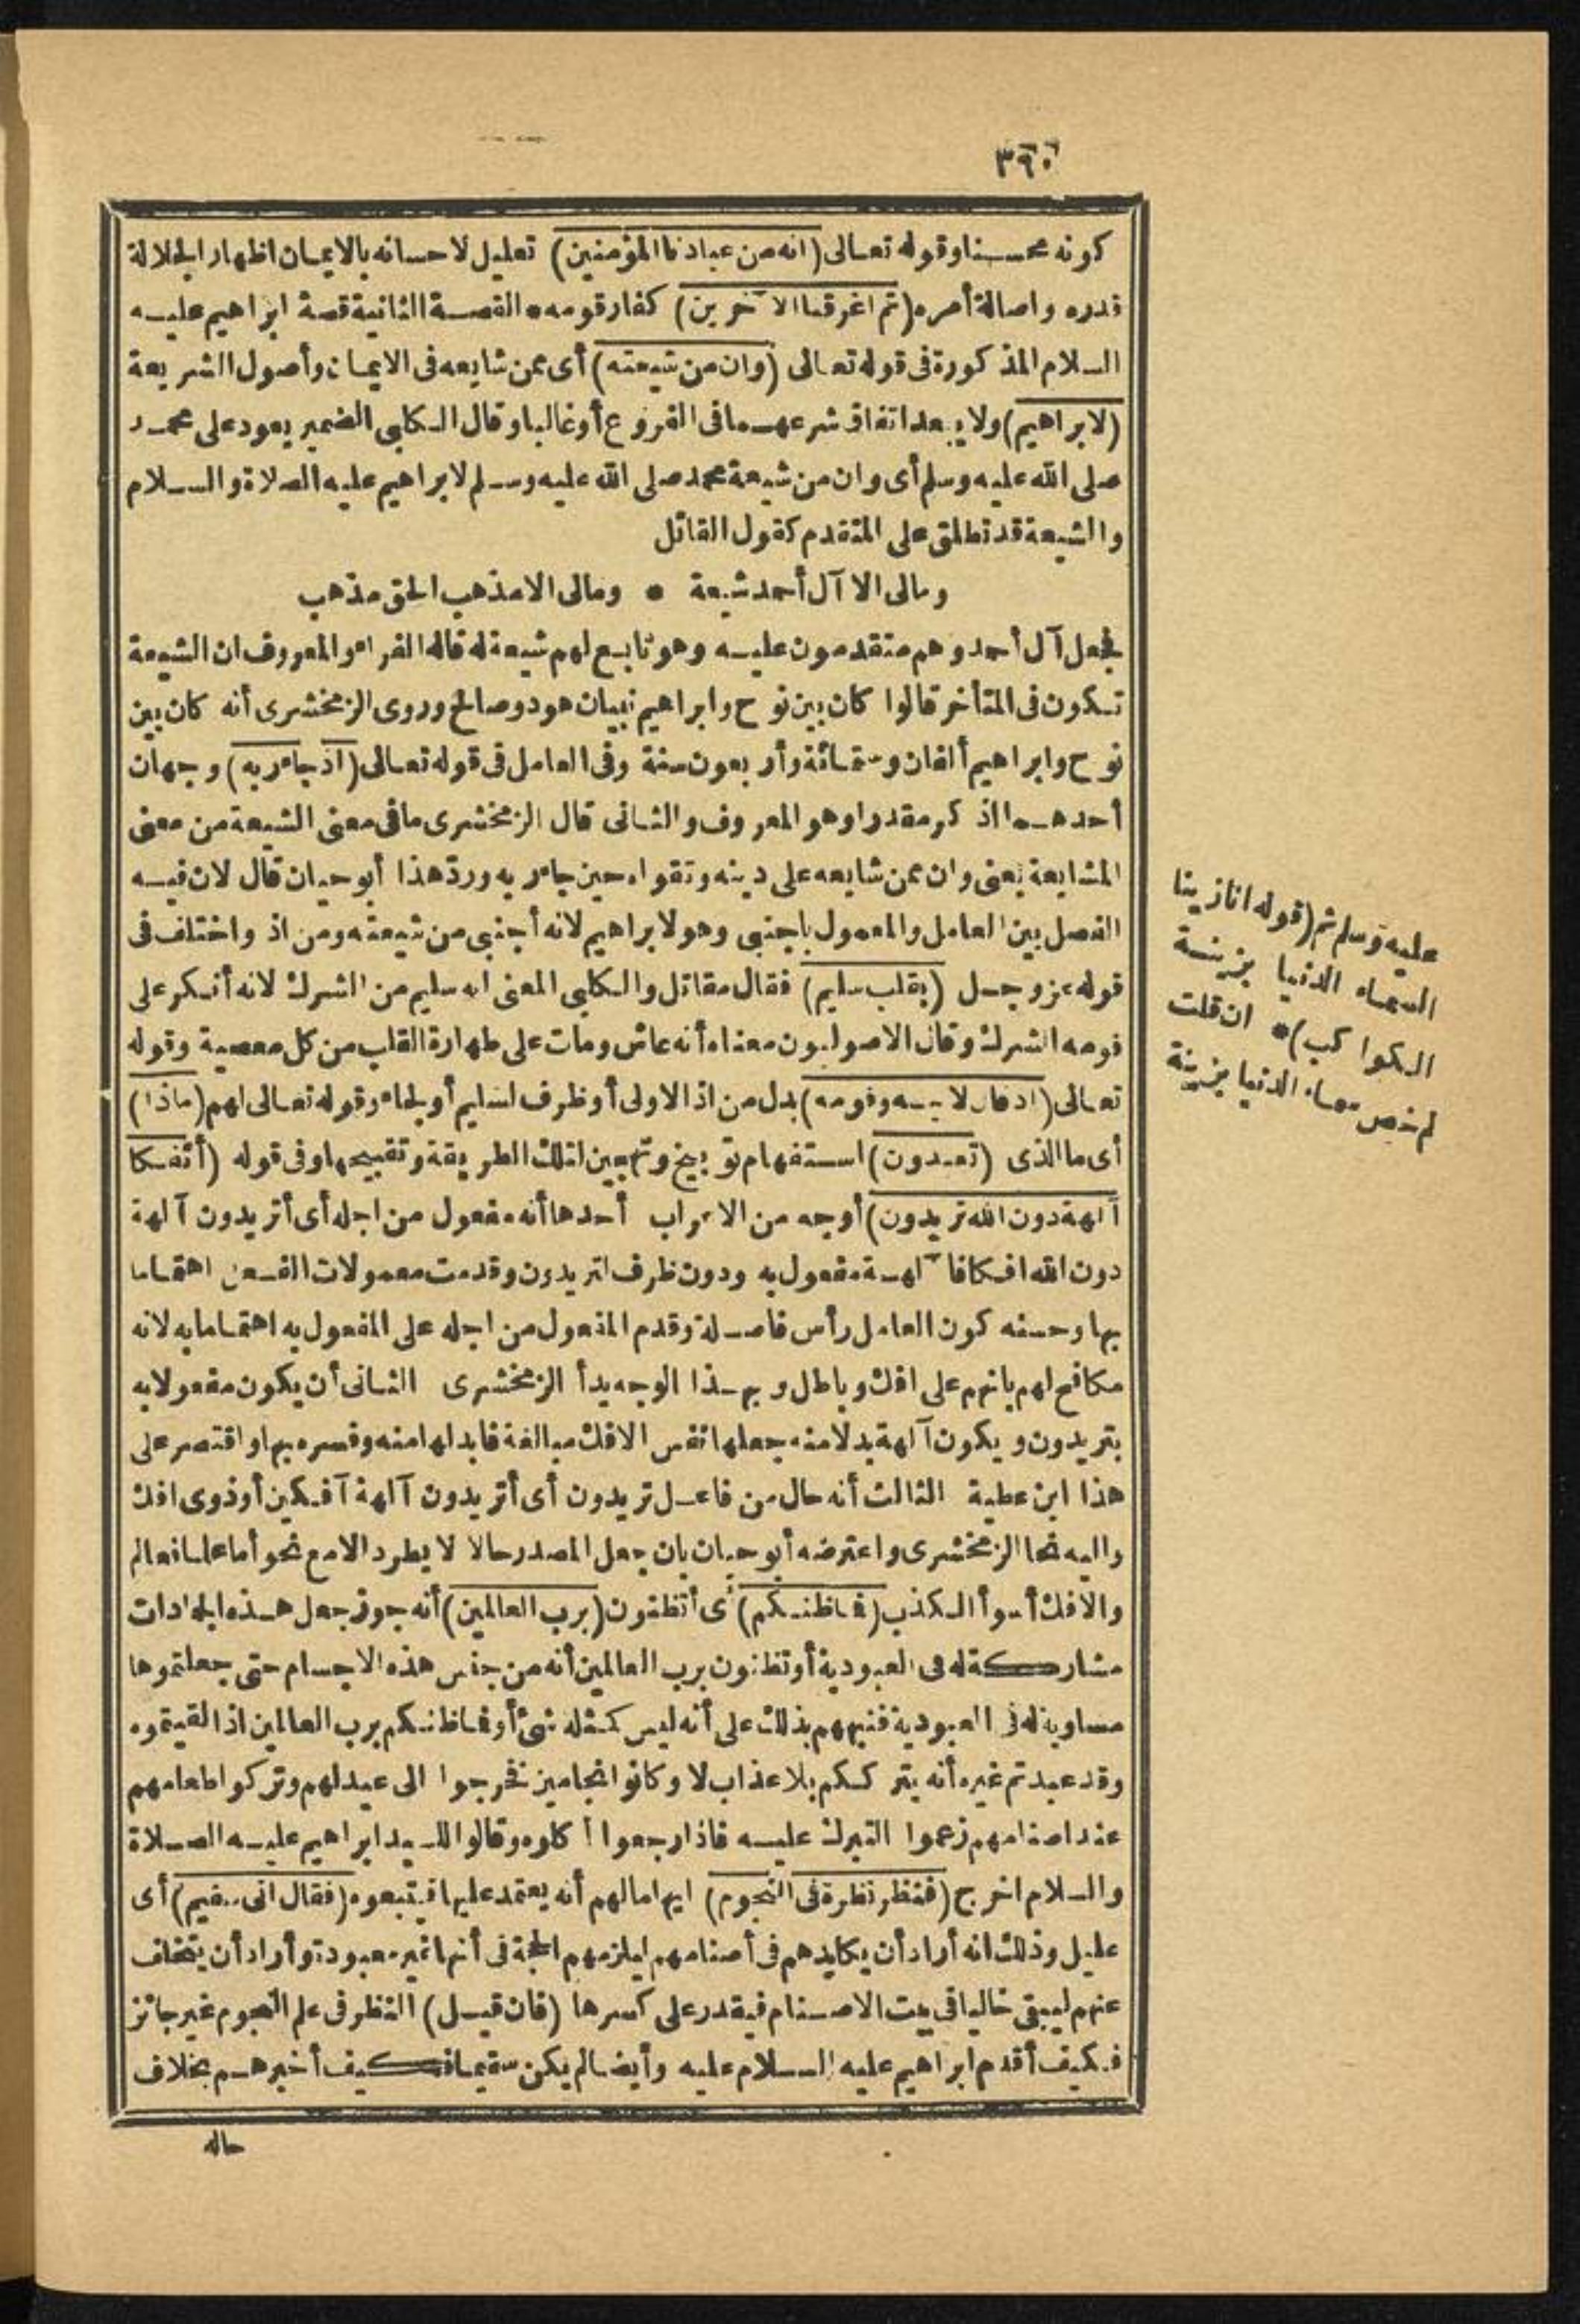 ٣٩٠
كونه محسنا وقوله تعالى (انه من عبادنا المؤمنين) تعليل لاحسانه بالايمان اظهار الجلالة
قدره واصالة أمره (ثم اغرقنا الآخرين) كفار قومه * القصة الثانية قصة ابراهيم عليه
السلام المذكورة فى قوله تعالى (وان من شيعته) أى ممن شايعه فى الايمان وأصول الشريعة
(لابراهيم) ولا يبعد اتفاق شرعهما فى الفروع أو غالبا وقال الكلبى الضمير يعود على محمد
صلى الله عليه وسلم أى وان من شيعة محمد صلى الله عليه وسلم لابراهيم عليه الصلاة والسلام
والشيعة قد تطلق على المتقدم كقول القائل
ومالى الا آل أحمد شيعة * ومالى الا مذهب الحق مذهب
فجعل آل أحمد وهم متقدمون عليه وهو تابع لهم شيعة له قاله الفراء والمعروف ان الشيعة
تكون فى المتأخر قالوا كان بين نوح وابراهيم نبيان هود وصالح وروى الزمخشرى أنه كان بين
نوح وابراهيم ألفان وستمائة وأربعون سنة وفى العامل فى قوله تعالى (اذ جاء ربه) وجهان
أحدهما اذكر مقدرا وهو المعروف والثانى قال الزمخشرى ما فى معنى الشيعة من معنى
المشايعة يعنى وان ممن شايعه على دينه وتقواه حين جاء ربه ورد هذا أبو حيان قال لان فيه
الفصل بين العامل والمعمول باجنبى وهو لابراهيم لانه أجنبى من شيعته ومن اذ واختلف فى
قوله عز وجل (بقلب سليم) فقال مقاتل والكلبى المعنى انه سليم من الشرك لانه أنكر على
قومه الشرك وقال الاصوليون معناه أنه عاش ومات على طهارة القلب من كل معصية وقوله
تعالى (اذ قال لابيه وقومه) بدل من اذ الاولى أو ظرف لسليم أو لجاء وقوله تعالى لهم (ماذا)
أى ما الذى (تعبدون) استفهام توبيخ وتهجين لتلك الطريقة وتقبيحها وفى قوله (أئفكا
آلهة دون الله تريدون) أوجه من الاعراب أحدها أنه مفعول من اجله أى أتريدون آلهة
دون الله افكا فآلهة مفعول به ودون ظرف لتريدون وقدمت معمولات الفعل اهتماما
بها وحسنه كون العامل رأس فاصلة وقدم المفعول من اجله على المفعول به اهتماما به لانه
مكافح لهم بانهم على افك وباطل وبهذا الوجه بدأ الزمخشرى الثانى أن يكون مفعولا به
بتريدون ويكون آلهة بدلا منه جعلها نفس الافك مبالغة فابدلها منه وفسره بها واقتصر على
هذا ابن عطية الثالث أنه حال من فاعل تريدون أى أتريدون آلهة آفكين أو ذوى افك
واليه نحا الزمخشرى واعترضه أبو حيان بان جعل المصدر حالا لا يطرد الا مع نحو أما علما فعالم
والافك أسوأ الكذب (فما ظنكم) أى أتظنون (برب العالمين) أنه جوز جعل هذه الجمادات
مشاركة له فى العبودية أو تظنون برب العالمين أنه من جنس هذه الاجسام حتى جعلتموها
مساوية له فى العبودية فنبههم بذلك على أنه ليس كمثله شئ أو فما ظنكم برب العالمين اذا لقيتموه
وقد عبدتم غيره أنه يترككم بلا عذاب لا وكانوا نجامين فخرجوا الى عيد لهم وتركوا طعامهم
عند اصنامهم زعموا التبرك عليه فاذا رجعوا أكلوه وقالوا للسيد ابراهيم عليه الصلاة
والسلام اخرج (فنظر نظرة فى النجوم) ايهاما لهم أنه يعتمد عليها فيتبعوه (فقال انى سقيم) أى
عليل وذلك انه أراد أن يكايدهم فى أصنامهم ليلزمهم الحجة فى أنها غير معبودة وأراد أن يتخلف
عنهم ليبقى خاليا فى بيت الاصنام فيقدر على كسرها (فان قيل) النظر فى علم النجوم غير جائز
فكيف أقدم ابراهيم عليه السلام عليه وأيضا لم يكن سقيما فكيف أخبرهم بخلاف
حاله
عليه وسلم ثم (قوله انا زينا
السماء الدنيا بزينة
الكواكب) * ان قلت
لم خص سماء الدنيا بزينة